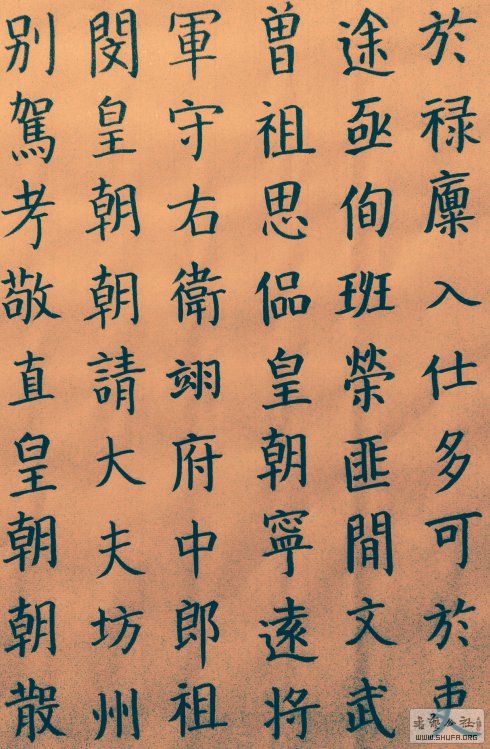 於禄廩入仕多可於吏
途亟侚班榮匪間文武
曽祖思偘皇朝寧遠将
軍守右衛翊府中郎祖
閔皇朝朝請大夫坊州
別駕考敬直皇朝朝散
WWW.SHUFA.ORG